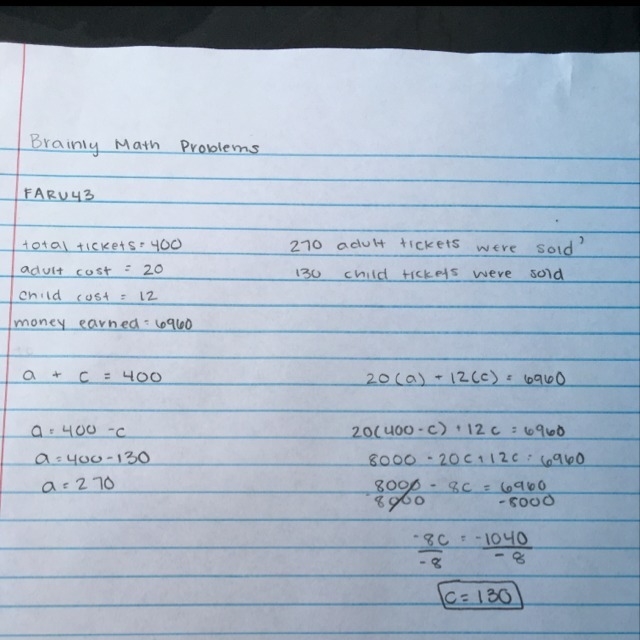 Brainly Math Problems
FARU43
total tickets = 400
adult cost = 20
child cost = 12
money earned = 6960
270 adult tickets were sold
130 child tickets were sold
a + c = 400
a = 400 - c
a = 400 - 130
a = 270
20(a) + 12(c) = 6960
20(400 - c) + 12c = 6960
8000 - 20c + 12c = 6960
8000 - 8c = 6960
8000 -8000
-8c = -1040
-8 -8
c = 130